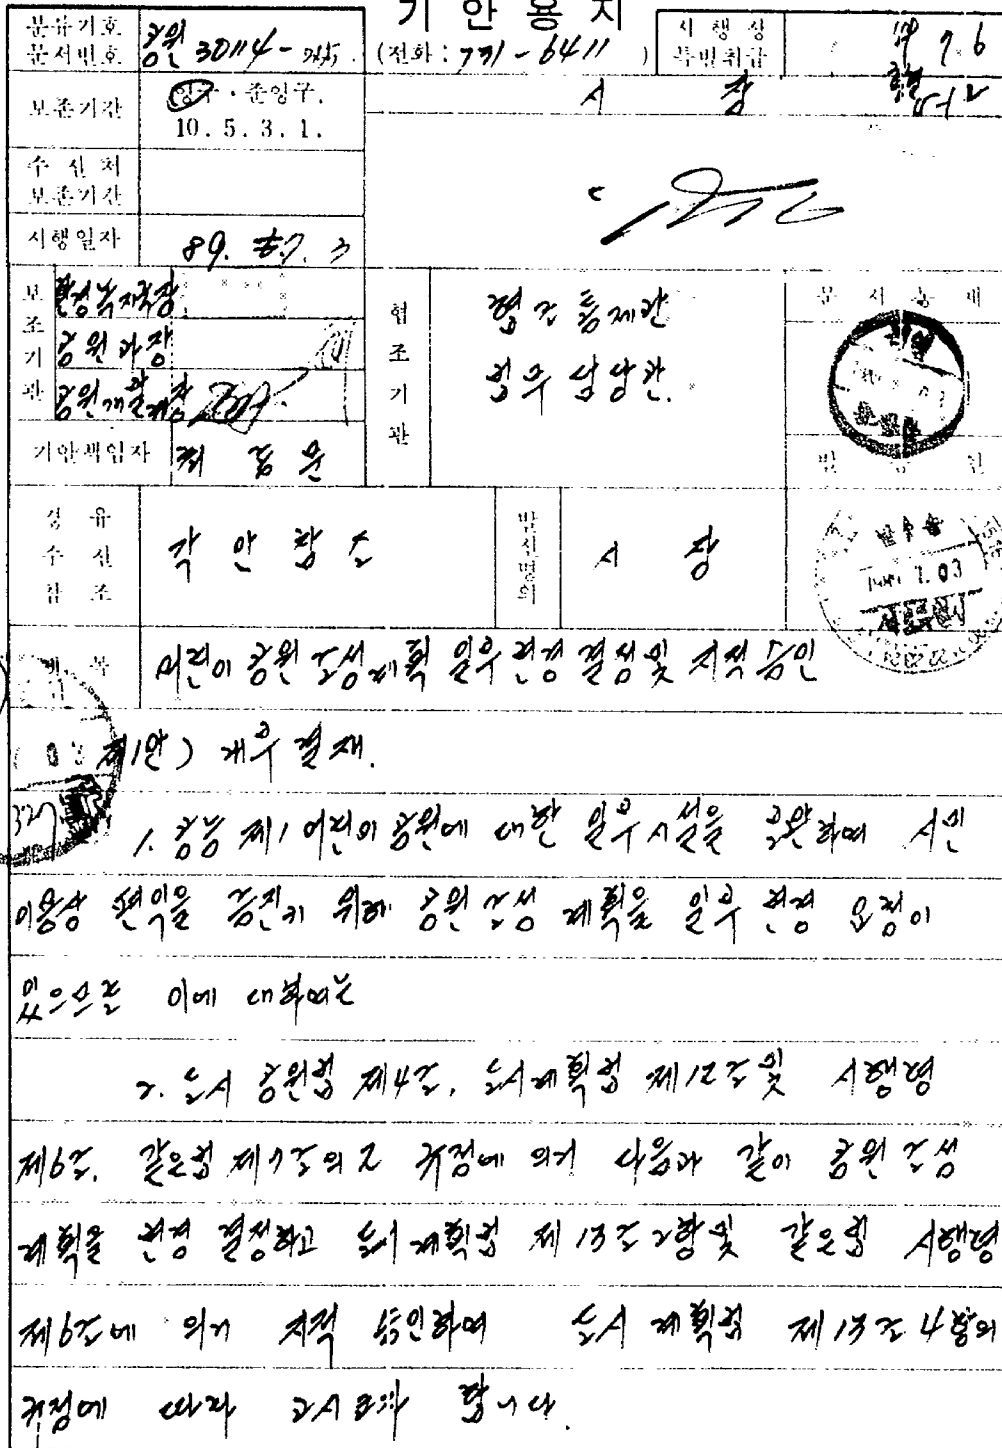 기안용지
분류기호
문서번호
공원 30114-
(전화 : 731-6411 )
시행상
특별취급
보존기간
영구 · 준영구.
10. 5. 3. 1.
시 장
수신처
보존기간
시행일자
89. 7. 3
보조기관
환경녹지국장
공원과장
공원개발계장
협조기관
법무담당관.
문서통제
기안책임자
발 인
경유
수신
참조
각안참조
발신명의
시 장
1989 7. 03
제목
어린이 공원 조성계획 일부 변경 결정 및 지적 승인
제1안) 내부결재.
1. 공릉 제1 어린이 공원에 대한 일부 시설을 하여 시민
이용상 편익을 증진키 위해 공원 조성 계획을 일부 변경 요청이
있으므로 이에 대하여는
2. 도시 공원법 제4조, 도시계획법 제12조 및 시행령
제6조, 같은법 제7조의2 규정에 의거 다음과 같이 공원 조성
계획을 변경 결정하고 도시계획법 제13조 2항 및 같은법 시행령
제6조에 의거 지적 승인하며 도시계획법 제13조 4항의
규정에 따라 고시코자 합니다.